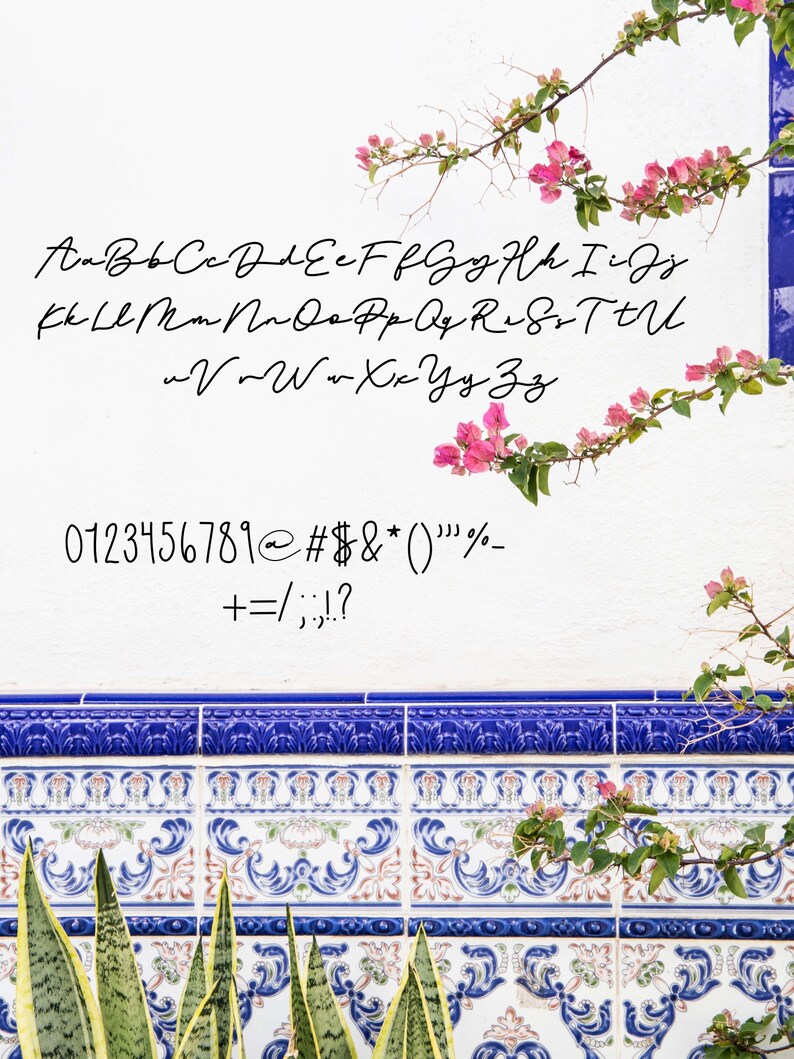 AaBbCcDdEeFfGgHhIiJj
KkLlMmNnOoPpQqRrSsTtU
uVvWwXxYyZz
0123456789@#$&*()’’’%-
+=/;:,!.?